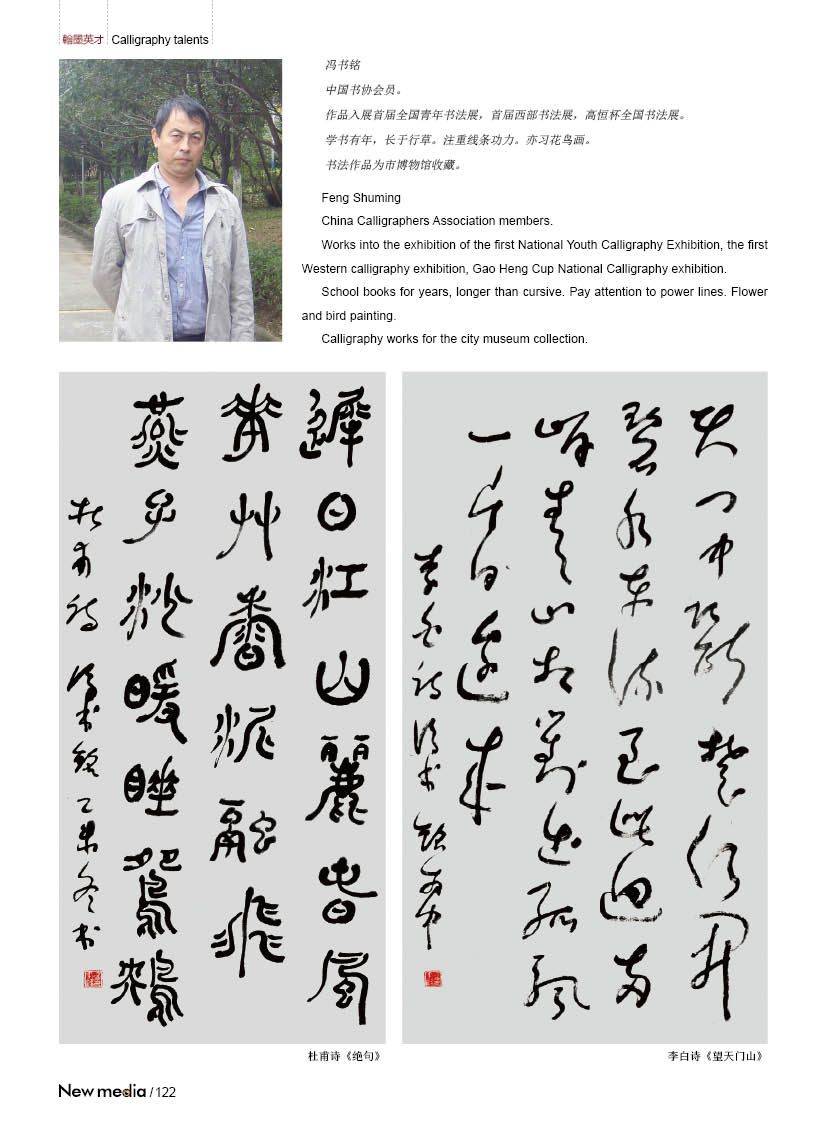 翰墨英才 Calligraphy talents
冯书铭
中国书协会员。
作品入展首届全国青年书法展，首届西部书法展，高恒杯全国书法展。
学书有年，长于行草。注重线条功力。亦习花鸟画。
书法作品为市博物馆收藏。
Feng Shuming
China Calligraphers Association members.
Works into the exhibition of the first National Youth Calligraphy Exhibition, the first
Western calligraphy exhibition, Gao Heng Cup National Calligraphy exhibition.
School books for years, longer than cursive. Pay attention to power lines. Flower
and bird painting.
Calligraphy works for the city museum collection.
遲日江山麗旾風
華艸香泥融飛
燕子沙暖睡鴛鴦
杜甫诗 冯书铭 乙未冬书
天门中断楚江开
碧水东流至此迴两
岸青山相对出孤帆
一片日边来
李白诗 冯书铭
杜甫诗《绝句》
李白诗《望天门山》
New media / 122